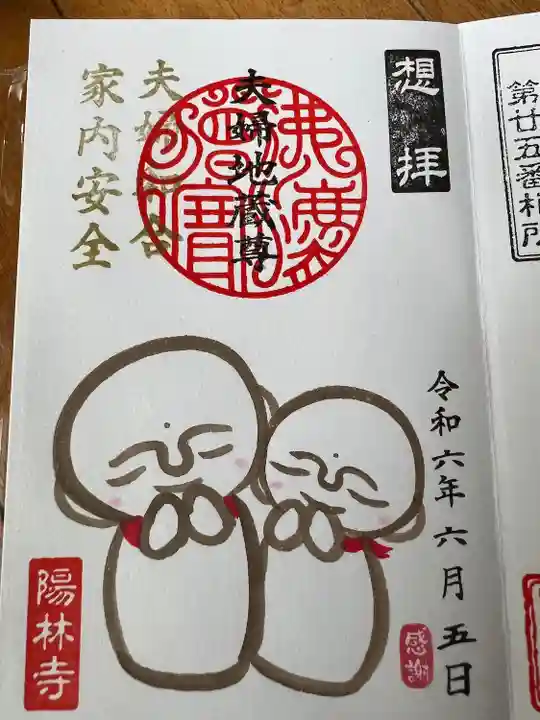 第廿五番札所
想拝
夫婦地蔵尊
夫婦和合
家内安全
令和六年六月五日
感謝
陽林寺